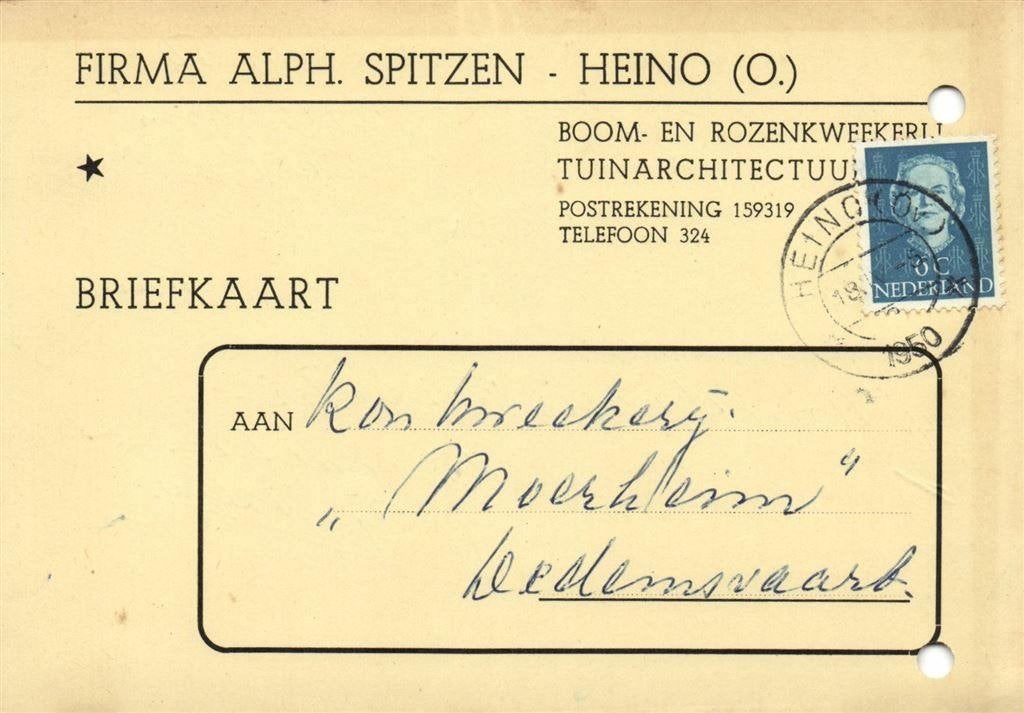 FIRMA ALPH. SPITZEN - HEINO (O.)
BOOM- EN ROZENKWEEKERIJ
TUINARCHITECTUU
POSTREKENING 159319
TELEFOON 324
HEINO (OV.)
1950
6 C
NEDERLAND
BRIEFKAART
AAN Kon Kweekerij.
„Moerheim"
Dedemsvaart.